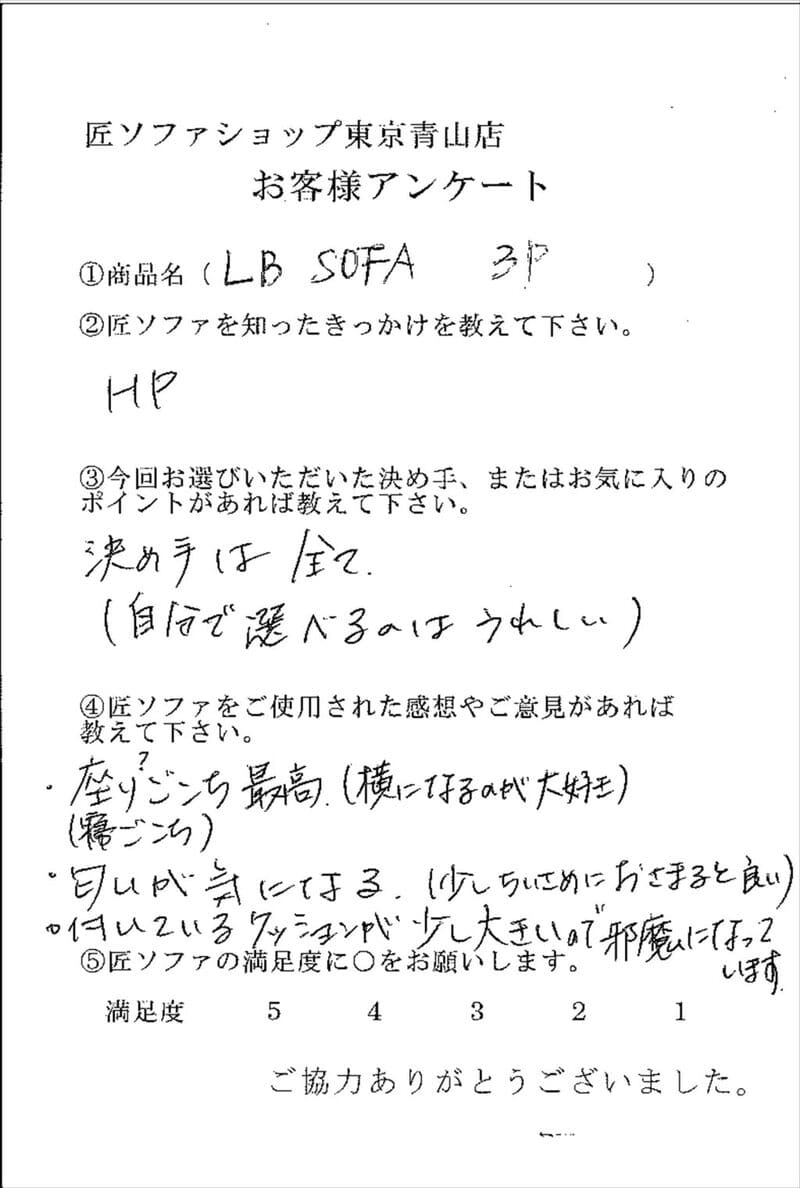 匠ソファショップ東京青山店
お客様アンケート
①商品名（ LB SOFA 3P ）
②匠ソファを知ったきっかけを教えて下さい。
HP
③今回お選びいただいた決め手、またはお気に入りの
ポイントがあれば教えて下さい。
決め手は全て.
(自分で選べるのはうれしい)
④匠ソファをご使用された感想やご意見があれば
教えて下さい。
?
・座りごこち最高.(横になるのが大好き)
(寝ごこち)
・匂いが気になる.(少しちいさめにおさまると良い)
・付いているクッションが少し大きいので邪魔になって
います.
⑤匠ソファの満足度に○をお願いします。
満足度 5 4 3 2 1
ご協力ありがとうございました。